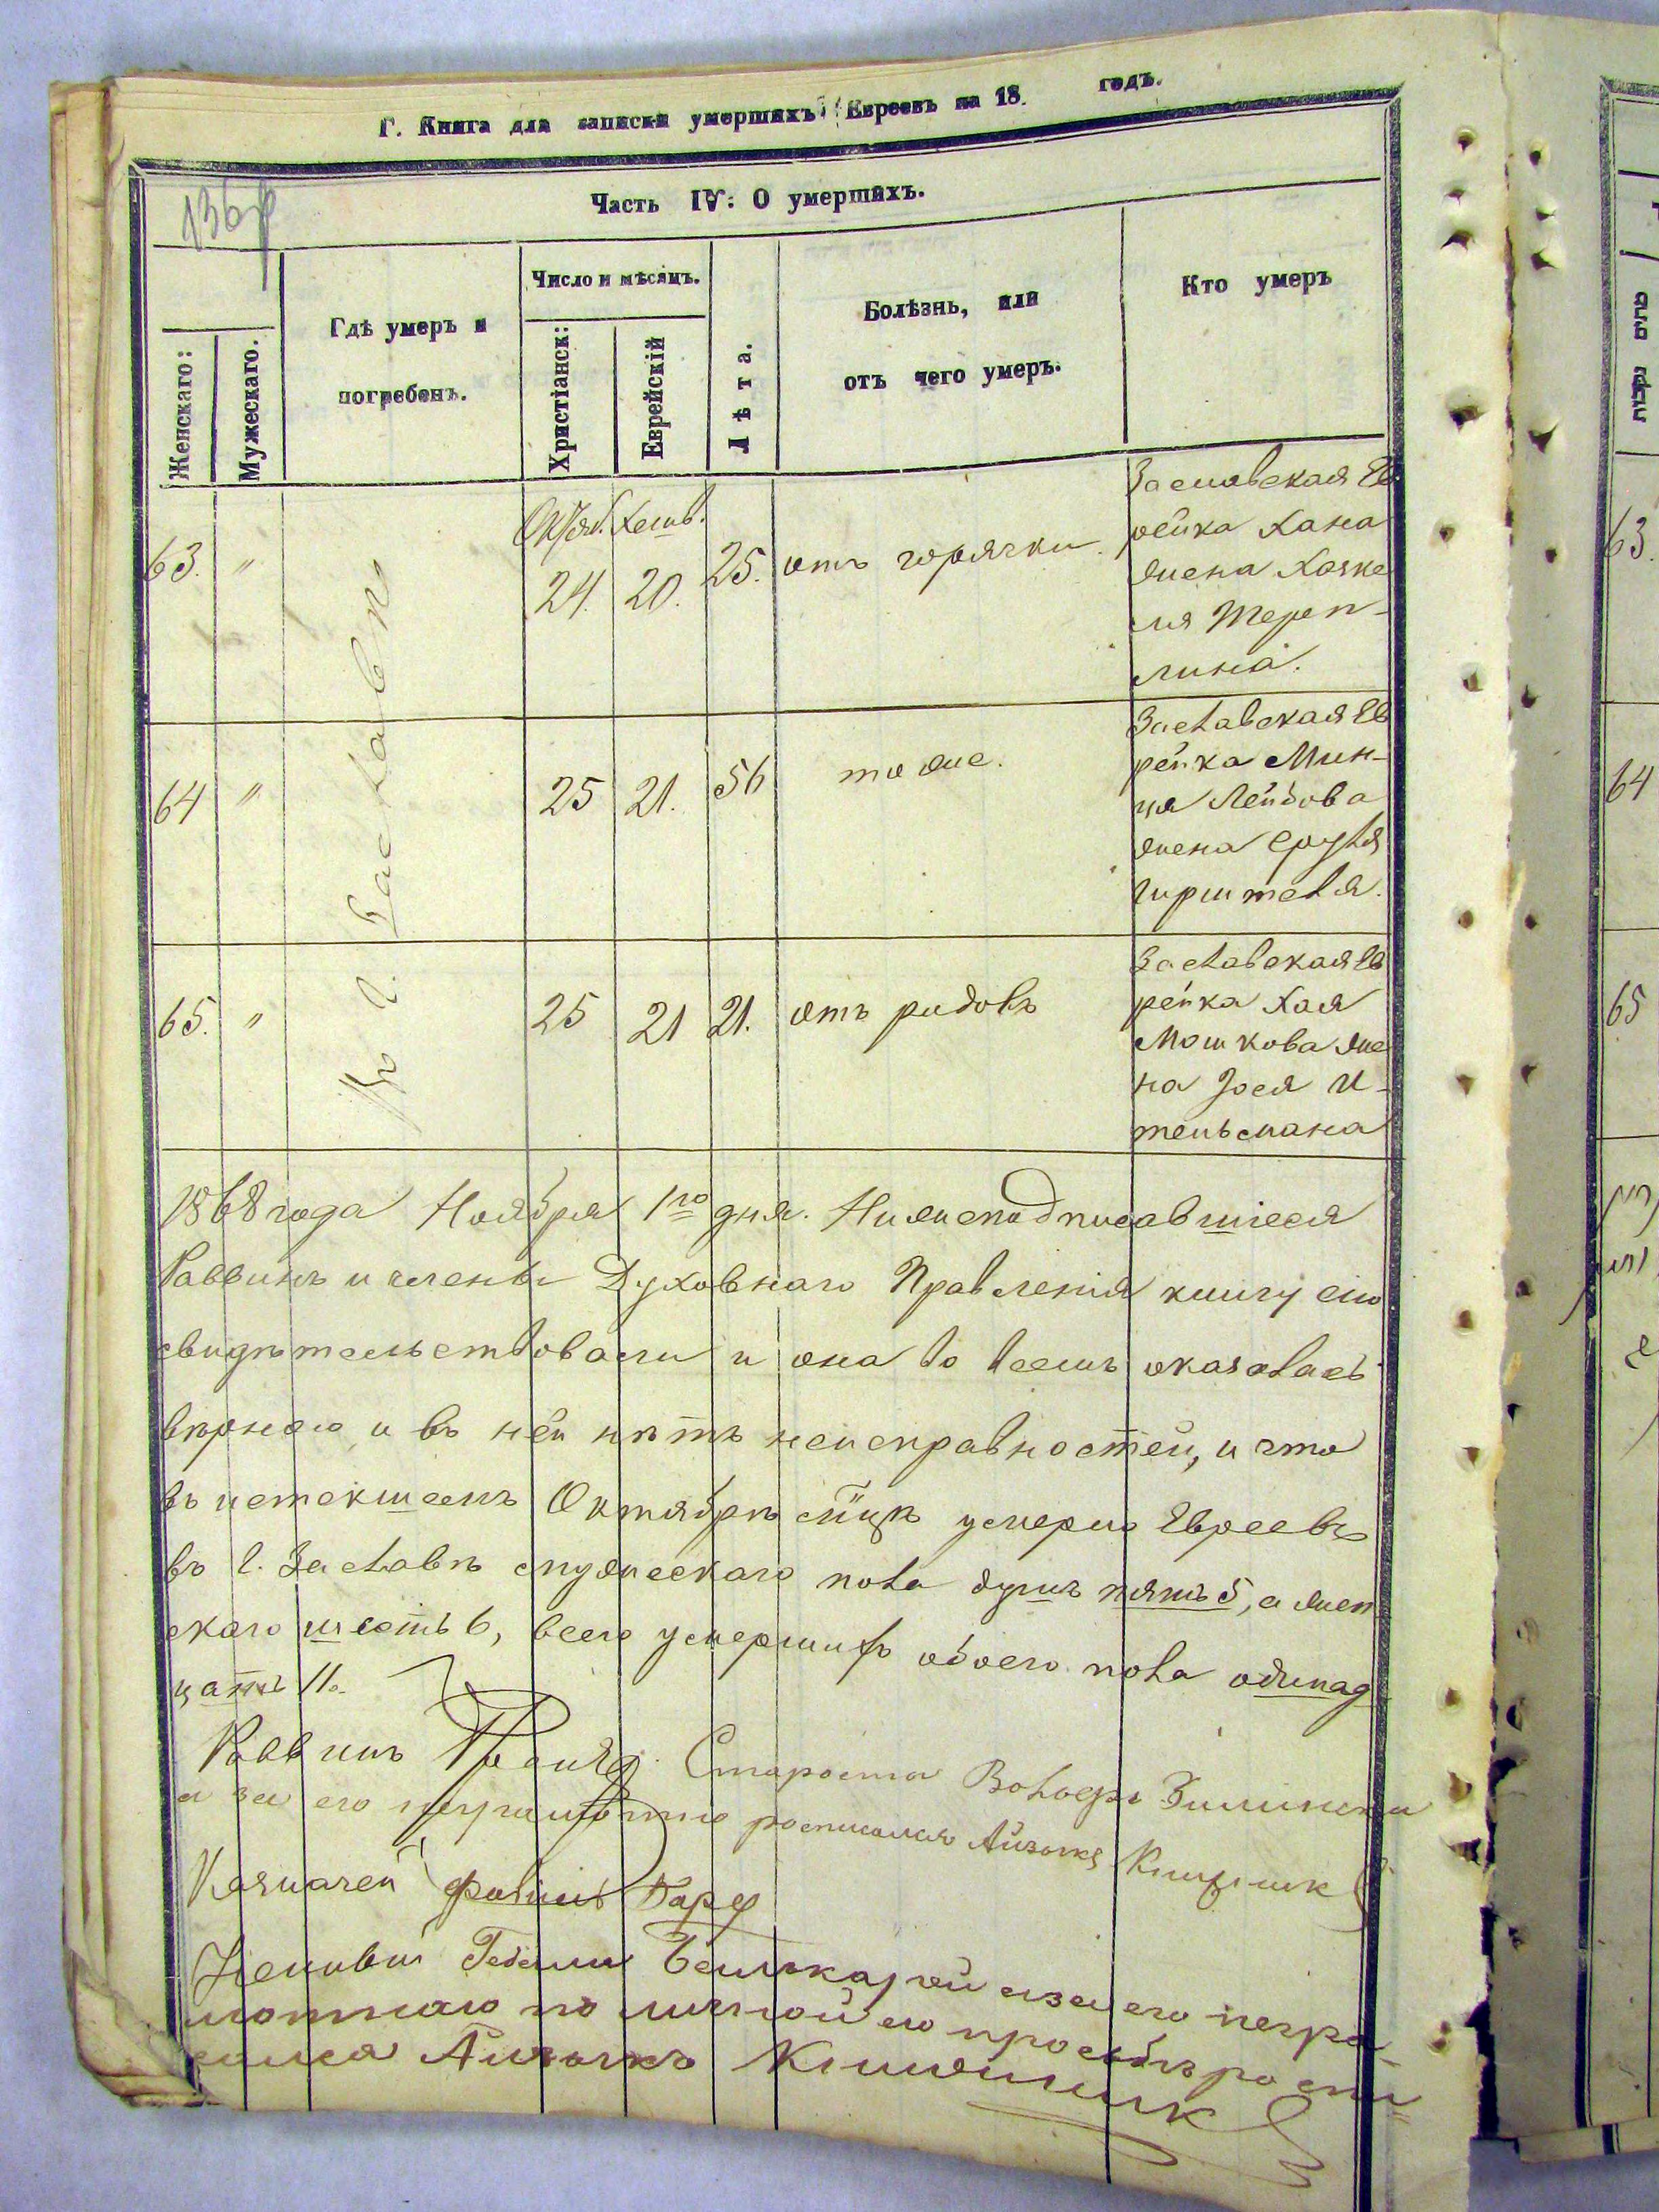 Г. Книга для записки умершихъ Евреевъ на 18 годъ.
136
Часть IV: О умершихъ.
Женскаго:
Мужескаго.
Гдѣ умеръ и
погребенъ.
Число и мѣсяцъ.
Христіанск:
Еврейскій
Лѣта.
Болѣзнь, или
отъ чего умеръ.
Кто умеръ
Октяб. Хешв.
63. " 24. 20. 25. отъ горячки.
Заславская Ев
рейка Хана
жена Хаяке
ля Тереп-
лина.
Въ г. Заславѣ
64 " 25 21. 56 тоже.
Заславская Ев
рейка Мин-
ця Лейбова
жена Сруля
Гирштеля.
65. " 25 21 21. отъ родовъ
Заславская Ев
рейка Хая
Мошкова же
на Іося И-
тельсмана
1868 года Ноября 1го дня. Нижеподписавшіеся
Раввинъ и члены Духовнаго Правленія книгу сію
свидѣтельствовали и она во всемъ оказалась
вѣрною и въ ней нѣтъ неисправностей, и что
въ истекшемъ Октябрѣ м̃цѣ умерло Евреевъ
въ г. Заславѣ мужескаго пола душъ пять 5, а жен
скаго шесть 6, всего умершихъ обоего пола одинад
цать 11.
Раввинъ Староста Вольфъ
а за его неграмотно росписался Айзыкъ
Казначей
Гедали а за его негра-
мотного по личной его просьбѣ роспи
сался Айзыкъ
מתים
63.
64
65